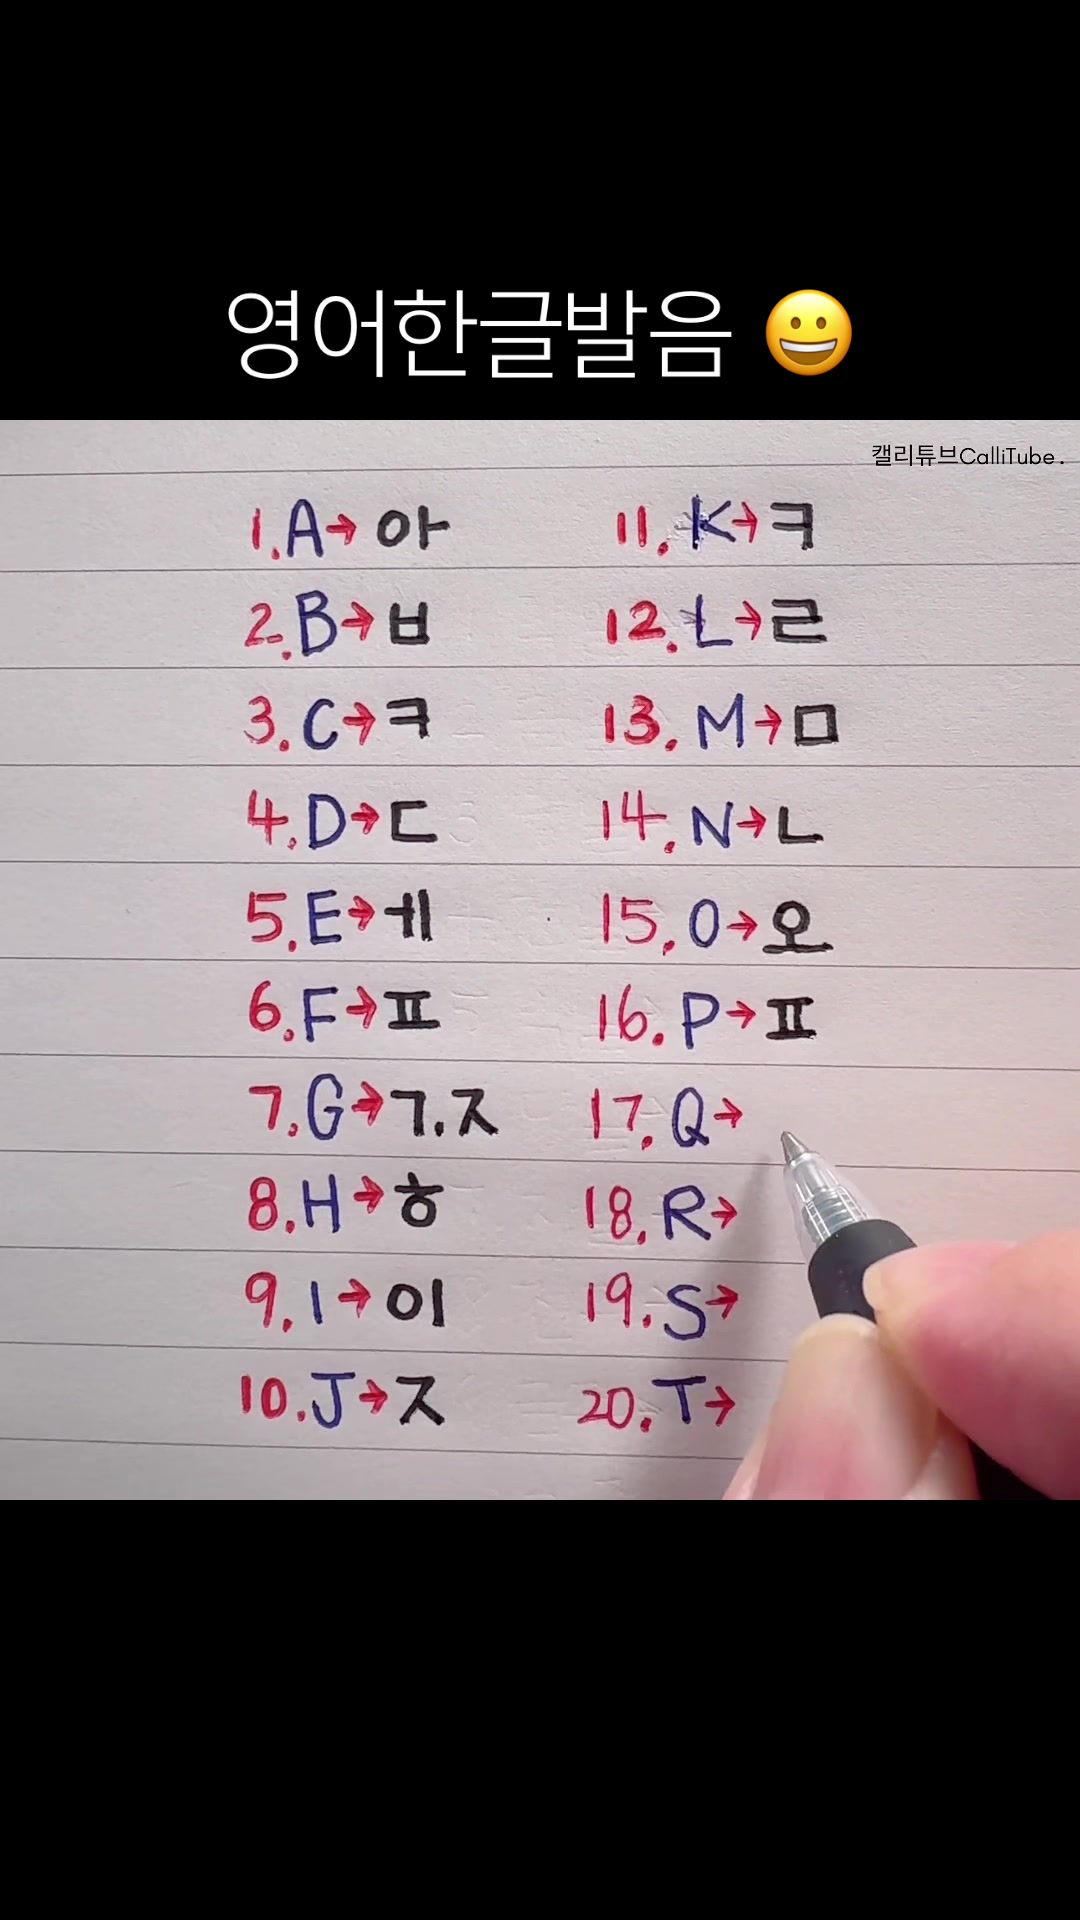 영어한글발음 😀
캘리튜브CalliTube.
1. A→ 아
2. B→ ㅂ
3. C→ ㅋ
4. D→ ㄷ
5. E→ ㅔ
6. F→ ㅍ
7. G→ ㄱ.ㅈ
8. H→ ㅎ
9. I→ 이
10. J→ ㅈ
11. K→ ㅋ
12. L→ ㄹ
13. M→ ㅁ
14. N→ ㄴ
15. O→ 오
16. P→ ㅍ
17. Q→
18. R→
19. S→
20. T→